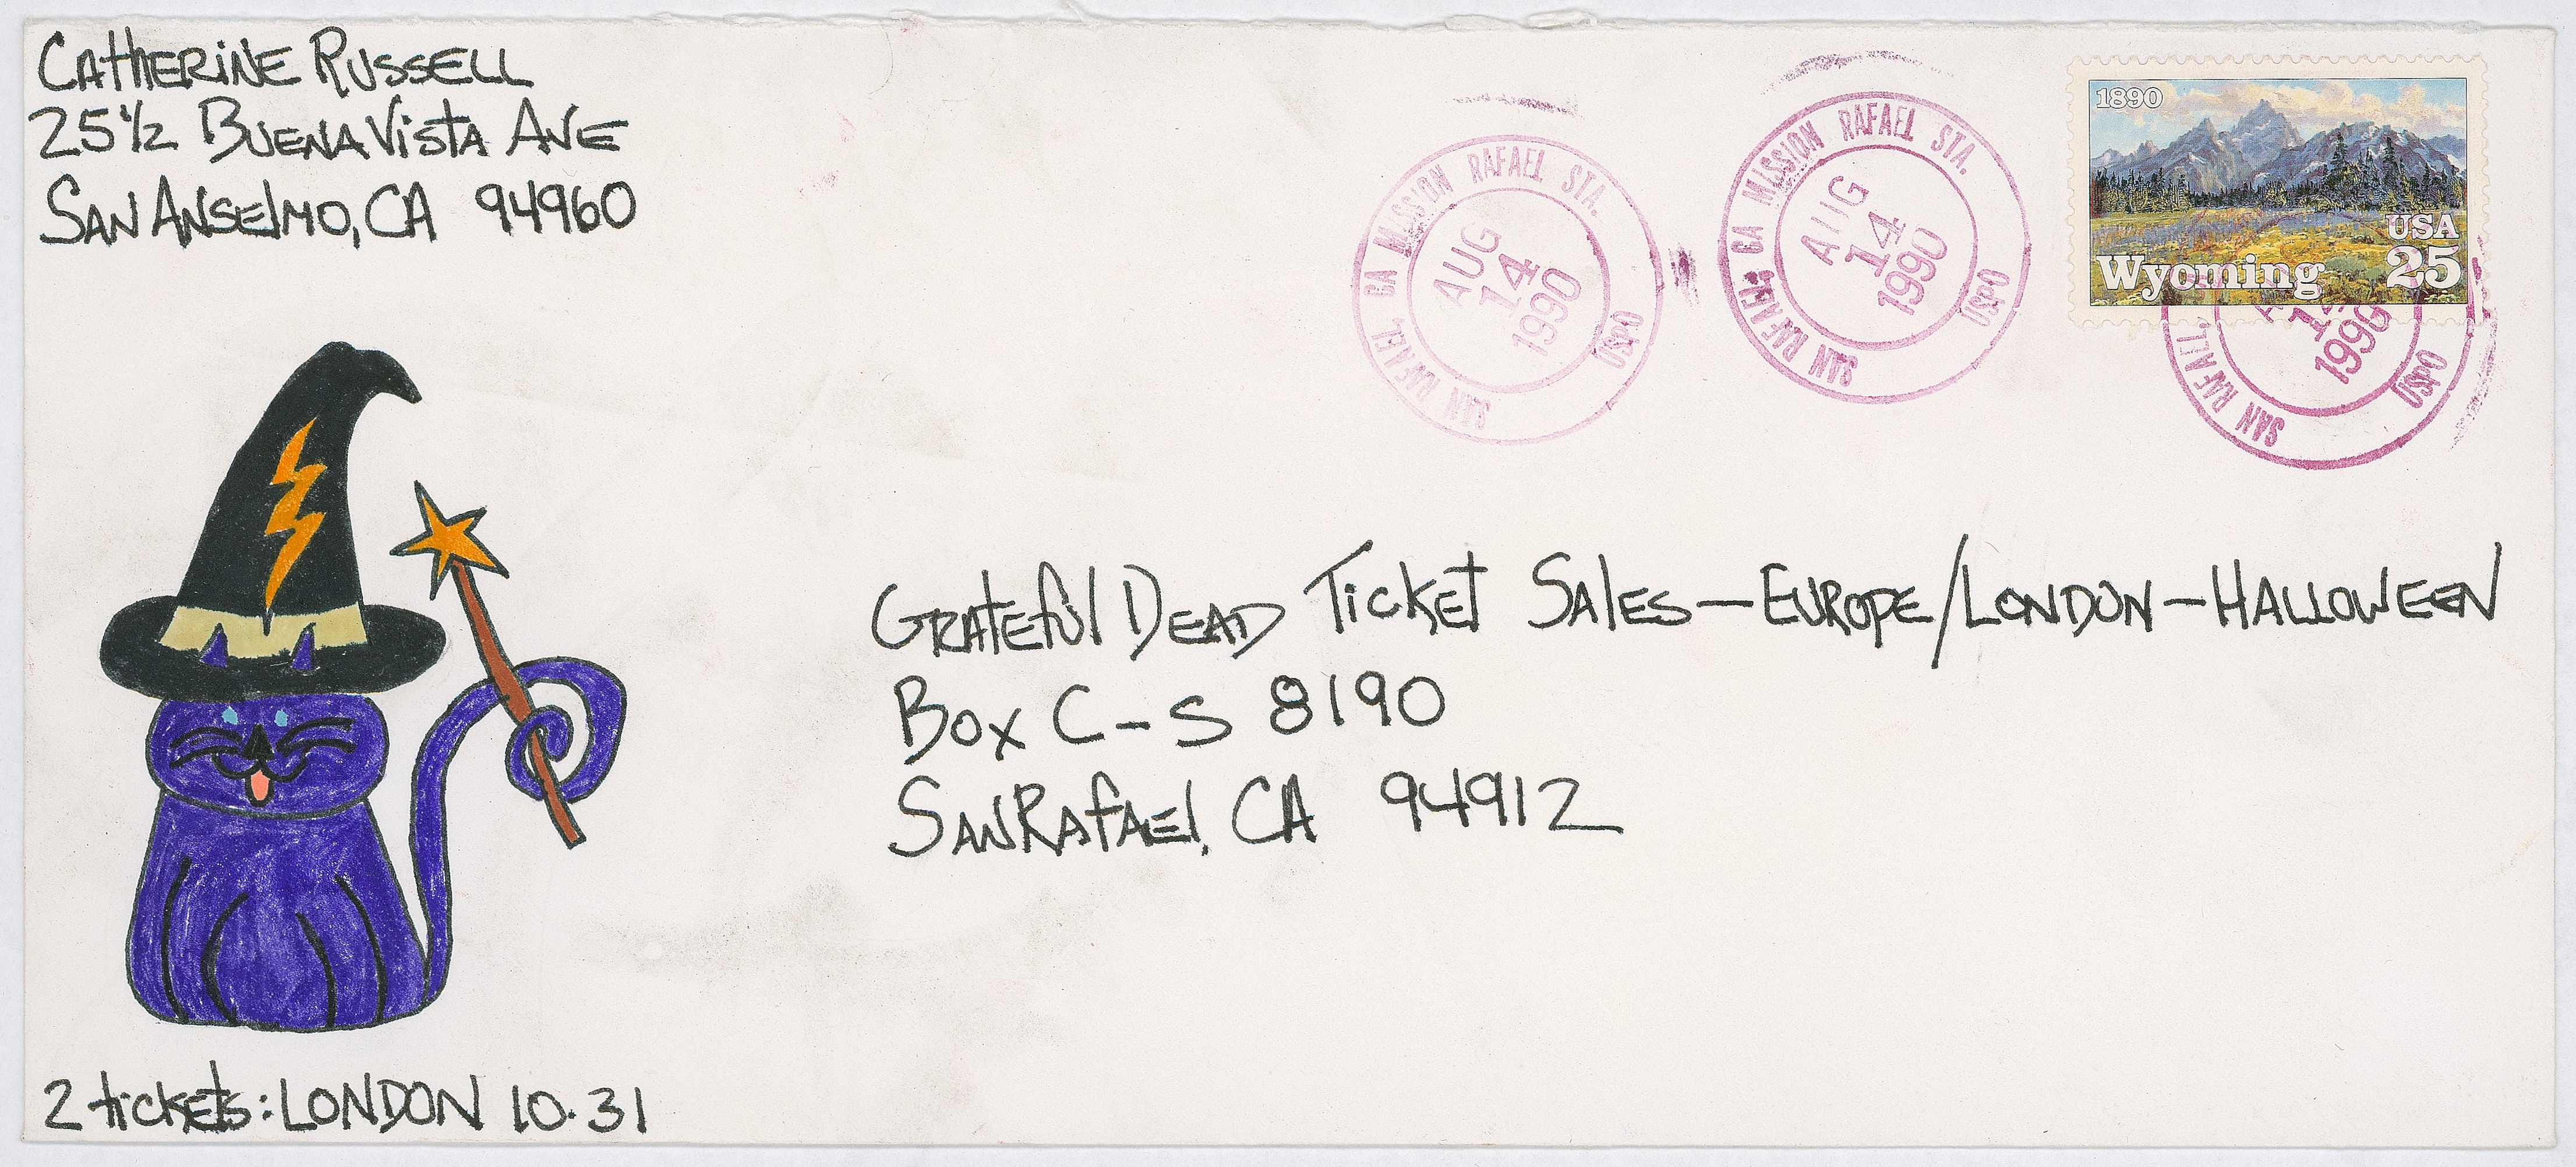 Catherine Russell
25 1/2 Buena Vista Ave
San Anselmo, CA 94960
SAN RAFAEL, CA MISSION RAFAEL STA. USPO
AUG
14
1990
SAN RAFAEL, CA MISSION RAFAEL STA. USPO
AUG
14
1990
1890
USA
Wyoming 25
SAN RAFAEL, USPO
1990
Grateful Dead Ticket Sales—Europe/London—Halloween
Box C-S 8190
San Rafael, CA 94912
2 tickets: LONDON 10.31